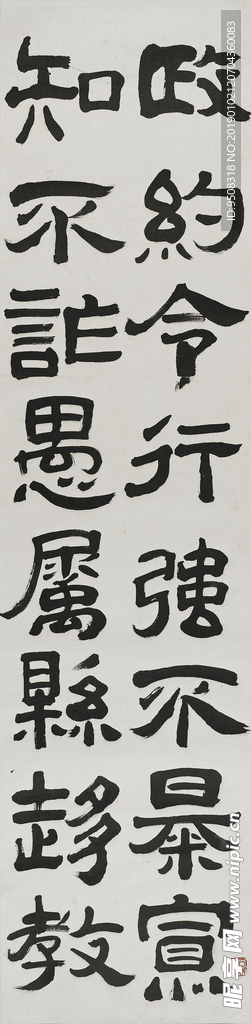 政約令行強不暴寡
知不詐愚屬縣趍教
ID:9508318 NO:20190102120704360083
昵图网 www.nipic.cn